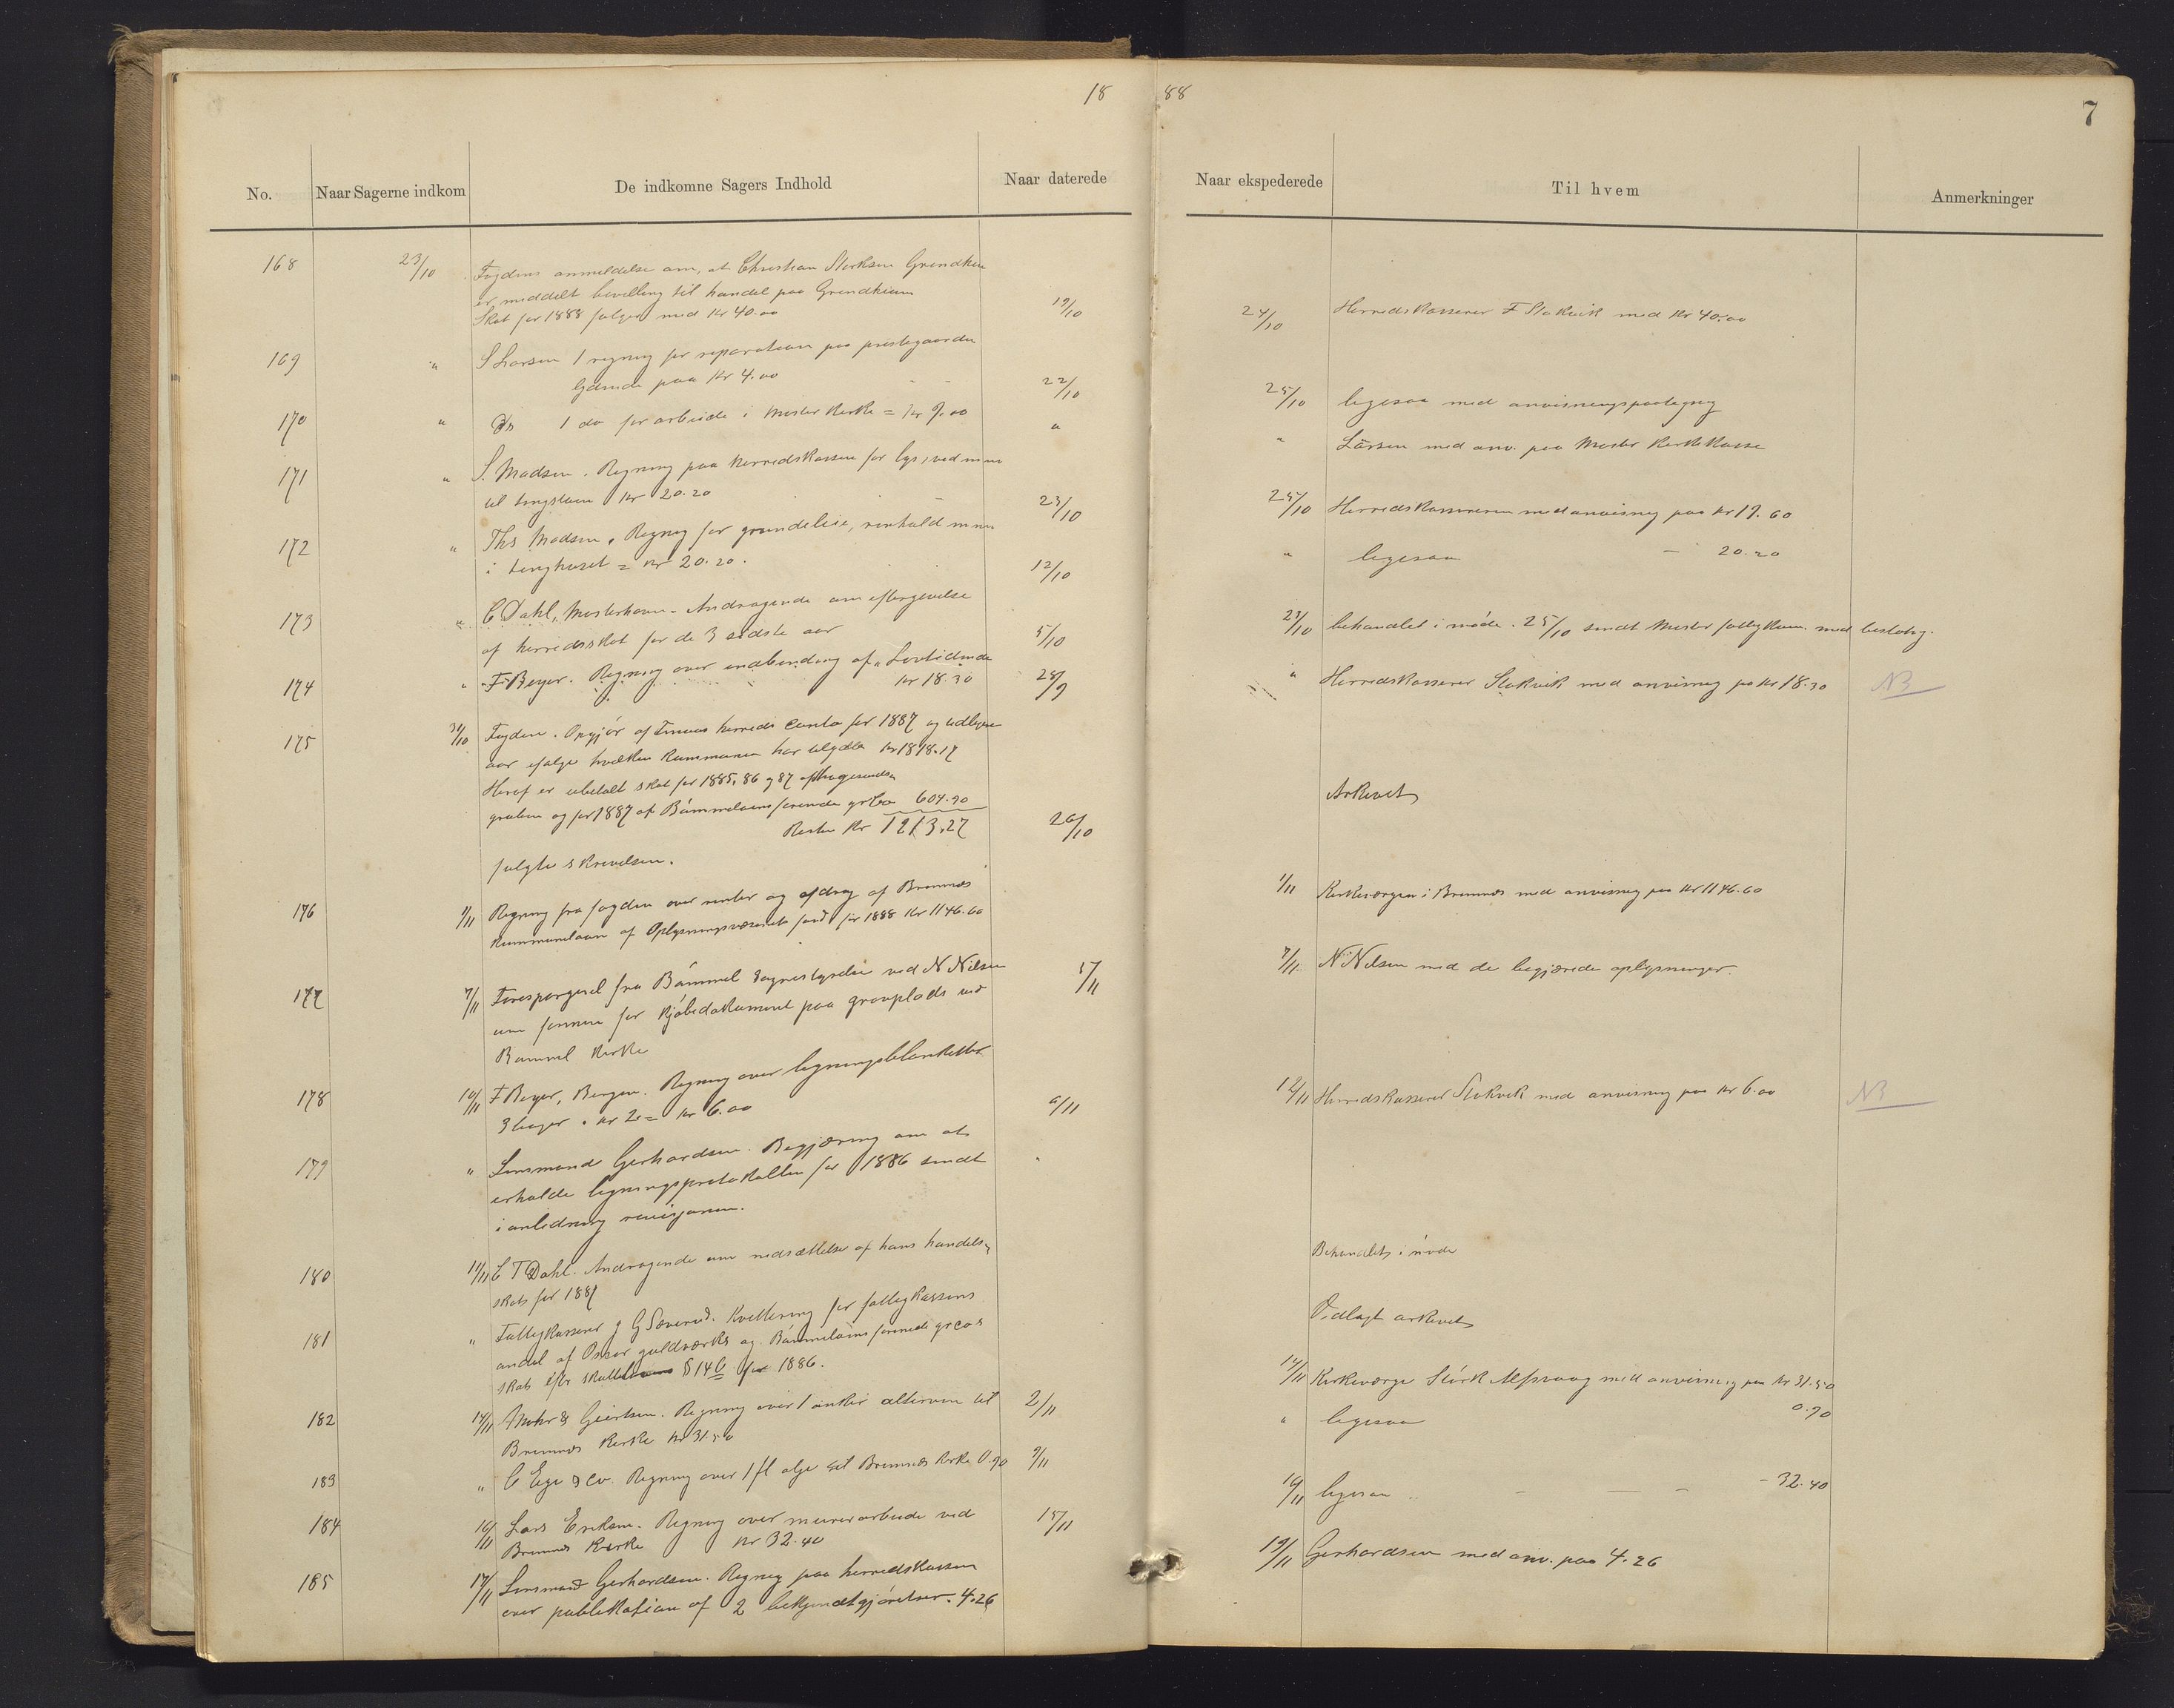 18 88
7
No. Naar Sagerne indkom De indkomne Sagers Indhold Naar daterede Naar ekspederede Til hvem Anmerkninger
168 23/10 Fogdens anmeldelse om, at Christian Størksen
er meddelt bevilling til handel paa
Skat for 1888 følger med Kr 40.00 19/10 24/10 Herredskasserer F Stokvik med Kr 40.00
169 " S Larsen 1 regning for reparation paa prestegaarden
paa Kr 4.00 22/10 25/10 ligesaa med anvisningspaategning
170 " Ds 1 do for arbeide i Moster Kirke = Kr 9.00 " " Larsen med anv. paa Moster Kirkekasse
171 " S. Madsen. Regning paa Herredskassen for lys, ved m m
til tingstuen Kr 20.20 23/10 25/10 Herredskassereren med anvisning paa Kr 19.60
172 " Ths Madsen. Regning for grundleie, renhold m m
i tinghuset = Kr 20.20. 12/10 " ligesaa — 20.20
173 " C Dahl, Mosterhavn. Andragende om eftergivelse
af herredsskat for de 3 sidste aar 5/10 23/10 behandlet i møde. 25/10 sendt Moster fattigkom. med beslutng.
174 " F Beyer. Regning over indbinding af "Lovtidende
Kr 18.30 28/9 " Herredskasserer Stokvik med anvisning pa Kr 18.30 NB
175 31/10 Fogden. Opgjør af Finnaas herreds Conto for 1887 og tidligere
aar ifølge hvilken Kommunen har tilgode Kr 1818.17
Heraf er ubetalt skat for 1885, 86 og 87 af
gruben og for 1887 af Bømmeløens forenede gr Co 604.90
Rester Kr 1213.27 26/10 Arkivet
fulgte skrivelsen.
176 1/11 Regning fra fogden over renter og afdrag af Bremnæs
Kommunelaan af Oplysningsvæsenets fond for 1888 Kr 1146.60 1/11 Kirkeværgen i Bremnæs med anvisning paa Kr 1146.60
177 7/11 Forespørgsel fra Bømmel Sognestyrelse ved N Nilsen
om formen for Kjøbedokument paa gravplads ved
Bømmel Kirke 5/11 7/11 N Nilsen med de begjærede oplysninger.
178 10/11 F Beyer, Bergen. Regning over ligningsblanketter
3 bøger a Kr 2 = Kr 6.00 6/11 12/11 Herredskasserer Stokvik med anvisning paa Kr 6.00 NB
179 " Lensmand Gerhardsen. Begjæring om at
erholde ligningsprotokollen for 1886 sendt
i anledning revisjonen. "
180 11/11 C T Dahl. Andragende om nedsættelse af hans handels-
skat for 1887 Behandlet i møde
181 " Fattigkasserer G Sæverud. Kvittering for fattigkassens
andel af Oscar guldværks og Bømmeløens forenede gr cos
skat efter § 14 C for 1886. Vidlagt arkivet
182 14/11 Mohr & Giertsen. Regning over 1 anker altervin til
Bremnæs Kirke Kr 31.50 2/11 14/11 Kirkeværge Størk Alfsvaag med anvisning paa Kr 31.50
183 " C Ege & Co. Regning over 1 fl olje til Bremnæs Kirke 0.90 9/11 " ligesaa 0.90
184 16/11 Lars Eriksen. Regning over murerarbeide ved
Bremnes Kirke Kr 32.40 15/11 16/11 ligesaa — — — 32.40
185 17/11 Lensmand Gerhardsen. Regning paa herredskassen
over publikation af 2 bekjendtgjørelser. 4.26 19/11 Gerhardsen med anv. paa 4.26